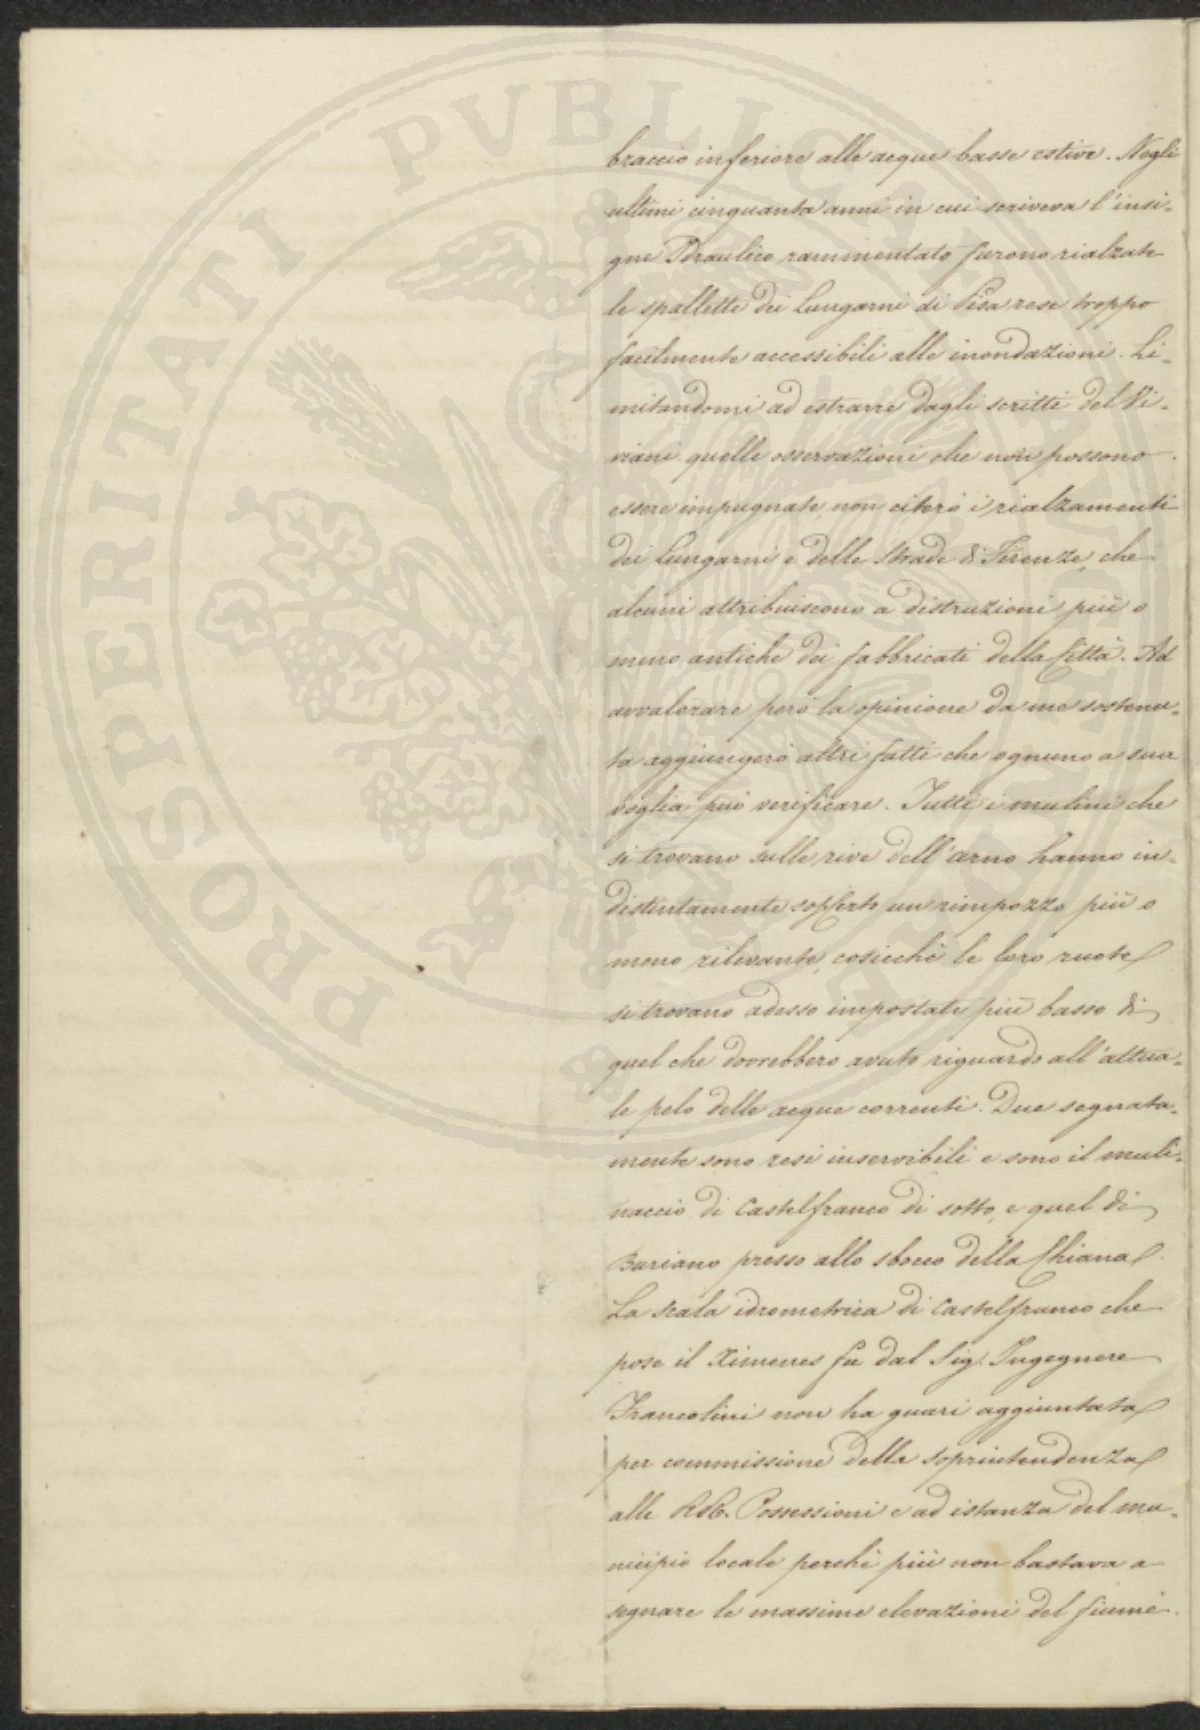 braccio inferiore alle acque basse estive. Negli
ultimi cinquanta anni in cui scriveva l'insi-
gne Idraulico rammentato furono rialzate
le spallette dei Lungarni di Pisa rese troppo
facilmente accessibili alle inondazioni. Li-
mitandomi ad estrarre dagli scritti del Vi-
viani quelle osservazioni che non possono
essere impugnate, non citerò i rialzamenti
dei Lungarni e delle Strade di Firenze, che
alcuni attribuiscono a distruzioni più o
meno antiche dei fabbricati della Città. Ad
avvalorare però la opinione da me sostenu-
ta aggiungerò altri fatti che ognuno a sua
voglia può verificare. Tutti i mulini che
si trovano sulle rive dell'Arno hanno in-
distintamente sofferto un rimpozzo più o
meno rilevante, cosicchè le loro ruote
si trovano adesso impostate più basso di
quel che dovrebbero avuto riguardo all'attua-
le pelo delle acque correnti. Due segnata-
mente sono resi inservibili e sono il muli-
naccio di Castelfranco di sotto, e quel di
Buriano presso allo sbocco della Chiana.
La scala idrometrica di Castelfranco che
pose il Ximenes fu dal Sig. Ingegnere
Francolini non ha guari aggiuntata
per commissione della soprintendenza
alle RR. Possessioni e ad istanza del mu-
nicipio locale perchè più non bastava a
segnare le massime elevazioni del fiume.
PROSPERITATI PUBLICAE